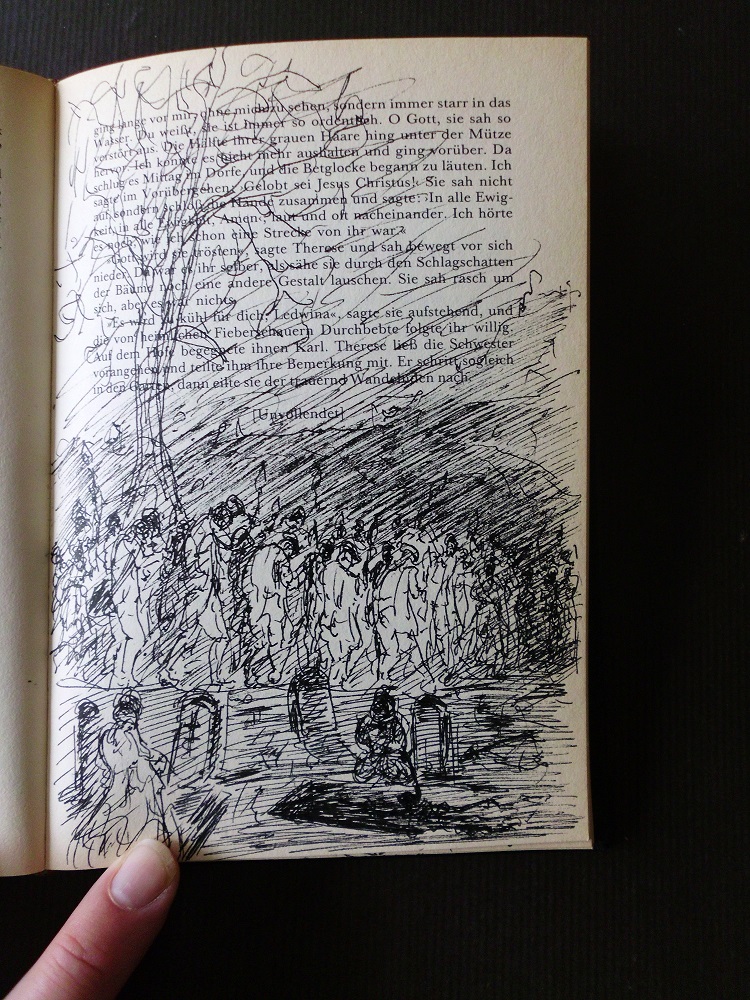 ging lange vor mir, ohne mich zu sehen, sondern immer starr in das
Wasser. Du weißt, sie ist immer so ordentlich. O Gott, sie sah so
verstört aus. Die Hälfte ihrer grauen Haare hing unter der Mütze
hervor. Ich konnte es nicht mehr aushalten und ging vorüber. Da
schlug es Mittag im Dorfe, und die Betglocke begann zu läuten. Ich
sagte im Vorübergehen: ›Gelobt sei Jesus Christus!‹ Sie sah nicht
auf, sondern schloß die Hände zusammen und sagte: ›In alle Ewig-
keit, in alle Ewigkeit, Amen‹, laut und oft nacheinander. Ich hörte
es noch, wie ich schon eine Strecke von ihr war.«
»Gott wird sie trösten«, sagte Therese und sah bewegt vor sich
nieder. Da war es ihr selber, als sähe sie durch den Schlagschatten
der Bäume noch eine andere Gestalt lauschen. Sie sah rasch um
sich, aber es war nichts.
»Es wird zu kühl für dich, Ledwina«, sagte sie aufstehend, und
die von heimlichen Fieberschauern Durchbebte folgte ihr willig.
Auf dem Hofe begegnete ihnen Karl. Therese ließ die Schwester
vorangehen und teilte ihm ihre Bemerkung mit. Er schritt sogleich
in den Garten, dann eilte sie der trauernd Wandelnden nach.
[Unvollendet]